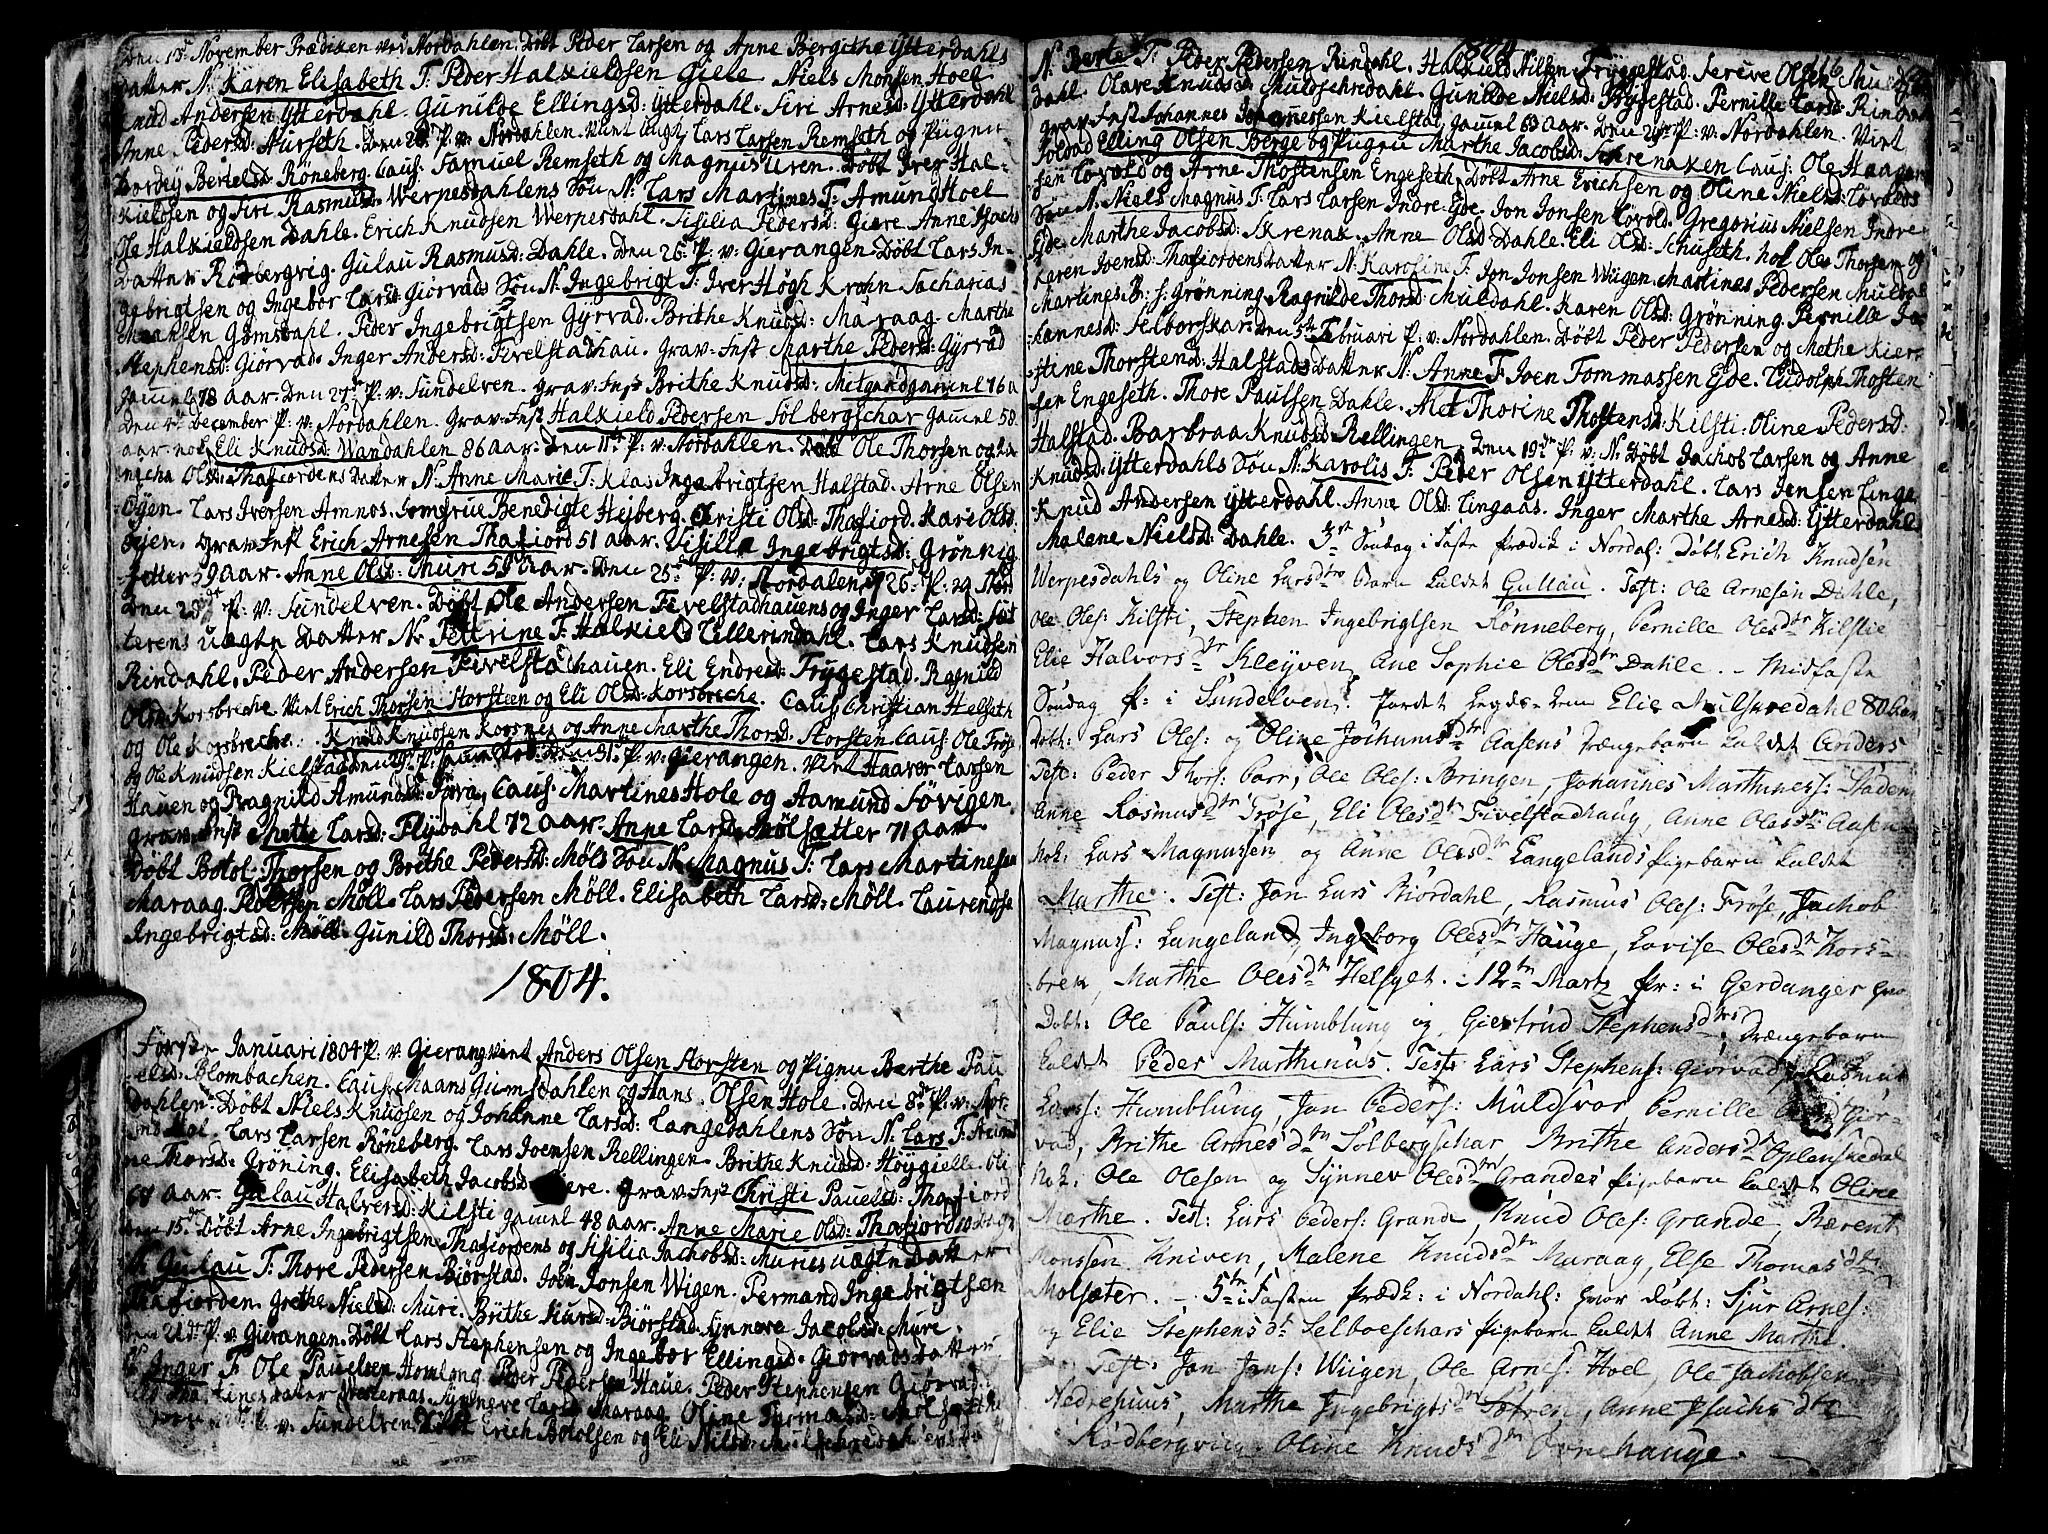 Den 13de November Prædiken ved Nordahlen. Döbt Peder Larsen og Anne Bergithe Ytterdahls
datter N: Karen Elisabeth T: Peder Halkieldsen Gille Niels Monsen Hoel
Knud Andersen Ytterdahl. Gunilde Ellingsd: Ytterdahl. Siri Arnesd: Ytterdahl
Anne Pedersd: Nurseth. Den 20de P: v: Nordahlen. Viet Lars Larsen Remseth og Pigen
Bertelsd: Röneberg. Caus: Samuel Remseth og Magnus Uren. Döbt Iver Hal-
kieldsen og Siri Rasmusd: Werpesdahlens Sön N: Lars Martines T: Amund Hoel
Ole Halkieldsen Dahle. Erich Knudsen Werpesdahl. Sisilia Pedersd: Giere. Anne Isachs
datter Rödbergvig. Gulau Rasmusd: Dahle. Den 26de P: v: Gierangen. Döbt Lars In-
gebrigtsen og Ingebor Larsd: Giorvads Sön N: Ingebrigt T: Iver Högh Krohn Sacharias
Maansen Gomsdahl. Peder Ingebrigtsen Gyrvad. Brithe Knudsd: Maraag. Marthe
Stephensd: Giörvad. Inger Andersd: Fivelstadhau. Grav: Fæst Marthe Pedersd: Gyrvad
gamel 78 aar. Den 27de P: v: Sundelven. Grav: Fæst Brithe Knudsd: gamel 76 a
Den 4de December P: v: Nordahlen. Grav: Fæst Halkield Pedersen Sölbergschar gamel 58
aar. nok Eli Knudsd: Wandahlen 86 aar. Den 11te P: v: Nordahlen. Döbt Ole Thorsen og
Olsd: Thafiordens datter N: Anne Marie T: Klas Ingebrigtsen Halstad. Arne Olsen
Öyen. Lars Iversen Amnos. Jomfrue Benedigte Hejberg. Christi Olsd: Thafiord. Kari Olsd:
Öjen. Grav: Fæst Erich Arnesen Thafiord 51 aar. Sisilia Ingebrigtsd: Grönnig
sætter 59 aar. Anne Olsd: Muri 59 aar. Den 25de P: v: Nordalen. 26de P: v:
Den 28de P: v: Sundelven. Döbt Ole Andersen Fivelstadhauens og Inger Larsd:
uægte datter N: Pettrine T: Halkield Lillerindahl. Lars Knudsen
Rindahl. Peder Andersen Fivelstadhauen. Eli Endresd: Frygestad. Ragnild
Olsd: Korsbreche. Viet Erich Thorsen Storsteen og Eli Olsd: Korsbreche. Caus: Christian Helseth
og Ole Korsbreche. Knud Knudsen Korsnes og Anne Marthe Thorsd: Storsten Caus: Ole Fröse
og Ole Knudsen Kielstad. Den 31te P: v: Gierangen. Viet Haaver Larsen
Hauen og Ragnild Amundsd: Caus: Martines Hole og Aamund Sövigen
Grav: Fæst Mette Larsd: Flydahl 72 aar. Anne Larsd: Mölsætter 71 aar
Döbt Botol Thorsen og Brithe Pedersd: Möls Sön N: Magnus T: Lars Martinesen
Maraag. Pedersen Möll. Lars Pedersen Möll. Elisabeth Larsd: Möll. Laurendse
Ingebrigtsd: Möll. Gunild Thorsd: Möll.
1804.
Förste Januari 1804 P: v: Gierang Viet Anders Olsen Storsten og Pigen Berthe Pau
elsd: Blombachen. Caus: Maans Giumsdahlen og Hans Olsen Hole. Den 8de P: v: Nor-
dahlen. Döbt Niels Knudsen og Johanne Larsd: Langedahlens Sön N: Lars T:
Lars Larsen Röneberg. Lars Joensen Rellingen. Brithe Knudsd: Höygielle.
Thorsd: Gröning. Elisabeth Jacobsd: Giere. Grav: Fæst Christi Pauelsd: Thafiord
67 aar. Gulau Halversd: Kilsti gamel 48 aar. Anne Marie Olsd: Thafiord 10 Dage
Den 15de Döbt Arne Ingebrigtsen Thafiordens og Sisilia Jachobsd: Muries uægte Datter
N: Gulau T: Thore Pedersen Biörstad. Joen Jonsen Wigen. Fermand Ingebrigtsen
Thafiorden. Grethe Nielsd: Muri. Brithe Biörstad. Synneve Jacobsd: Muri.
Den 22de P: v: Gierangen. Döbt Lars Stephensen og Ingebor Ellingsd: Giorvads Datter
N: Inger T: Ole Pauelsen Homlong. Peder Pedersen Haue. Peder Stephensen Giörvad:
Westeraas. Synneve Larsd: Maraag. Oline Mölsætter
P: v: Sundelven. Döbt Erich Botolsen og Eli Nilsd: Mulschredahlens
1804
116
N: Berte T: Peder Pedersen Rindahl. Halkield Nilsen Fryggestad. Sereve Olsen
dahl. Olave Knudsd: Muldschredahl. Gunilde Nielsd: Frygestad. Pernille Larsd: Rindahl
Grav: Fæst Johannes Johannessen Kielstad gamel 69 aar. Den 29de P: v: Nordahlen. Viet
Soldad Elling Olsen Berge og Pigen Marthe Jacobsd: Schrenaken Caus: Ole Haagen
sen Lövold og Arne Thostensen Engeseth. Döbt Arne Erichsen og Oline Nielsd: Lövolds
Sön N: Niels Magnus T: Lars Larsen Indre-Ejde. Jon Jonsen Lövold. Gregorius Nielsen Indre
Ejde. Marthe Jacobsd: Skrenak. Anne Olsd: Dahle. Eli Olsd: Schuseth. nok Ole Thorsen og
Karen Joensd: Thafiordens datter N: Karoline T: Jon Jonsen Wiigen. Martines Pedersen Mulda
Martines B: s: Grönning. Ragnilde Thorsd: Muldahl. Karen Olsd: Grönning. Pernille Jo-
hannesd: Selborskar. Den 5te Februari P: v: Nordahlen. Döbt Peder Pedersen og Methe Kier-
stine Thorstensd: Halstads datter N: Anne T: Joen Tommassen Ejde. Ludolph Thosten
sen Engeseth. Thore Paulsen Dahle. Thorine Thostensd: Kilsti. Oline Pedersd:
Halstad. Barbraa Knudsd: Rellingen. Den 19de P: v: N: Döbt Jachob Larsen og Anne
Knudsd: Ytterdahls Sön N: Karolis T: Peder Olsen Ytterdahl. Lars Jensen Linge
Knud Andersen Ytterdahl. Anne Olsd: Lingaas. Inger Marthe Arnesd: Ytterdahls
Malene Nielsd: Dahle. 3die Söndag i Faste Prædik: i Nordal: Döbt: Erich Knudsen
Werpesdahls og Oline Larsdtrs Barn kaldet Gullau. Test: Ole Arnesen Dahle,
Ole Oles: Kilsti, Stephen Ingebrigtsen Rönneberg, Pernille Olesdtr Kilstie
Elie Halvorsdtr Kleyven, Ane Sophie Olesdtr Dahle. – Midfaste
Söndag Pr: i Sundelven: Jordet Elie Mulskredahl 80 Aar
Döbt: Lars Oles: og Oline Jochumsdtr Aasens Drængebarn kaldet Anders
Test: Peder Thors: Oles: Bringen, Johannes Marthinus: Staden
Anne Rasmusdtr Fröse, Eli Olesdtr Fivelstadhaug, Anne Olesdtr Aasen
Nok: Lars Magnussen og Anne Olesdtr Langelands Pigebarn kaldet
Marthe. Test: Jon Lars Biördahl, Rasmus Oles: Fröse, Jachob
Magnuss: Langeland, Ingeborg Olesdtr Hauge, Lovise Olesdtr Kors-
brek, Marthe Olesdtr Helsyet. – 12te Martz Pr: i Gerdanger hvor
Döbt: Ole Pauls: Humblung og Giertrud Stephensdtrs Drængebarn
kaldet Peder Marthinus. Test: Lars Stephens: Giörvad, Rasmus
Larss: Humblung, Jon Peders: Muldsvor, Pernille Giör-
vad, Brithe Arnesdtr Solbergschar, Brithe Andersdtr Oplenskedal
Nok: Ole Olesen og Synnev Olesdtr Grandes Pigebarn kaldet Oline
Marthe. Test: Lars Peders: Grande, Knud Oles: Grande, Bærent
Monssen Kniven, Malene Knudsdtr Maraag, Else Thomasdtr
Molsæter. – 5te i Fasten Prædk: i Nordahl: hvor Döbt: Sjur Arnes:
og Elie Stephensdtr Selboeschars Pigebarn kaldet Anne Marthe.
Test: Jon Jons: Wiigen, Ole Arnes: Hoel, Ole Jachobsen
Nedrepuus, Marthe Ingebrigtsdtr Anne Isachsdtr
Rödbergvig, Oline Knudsdtr Ovnehauge.